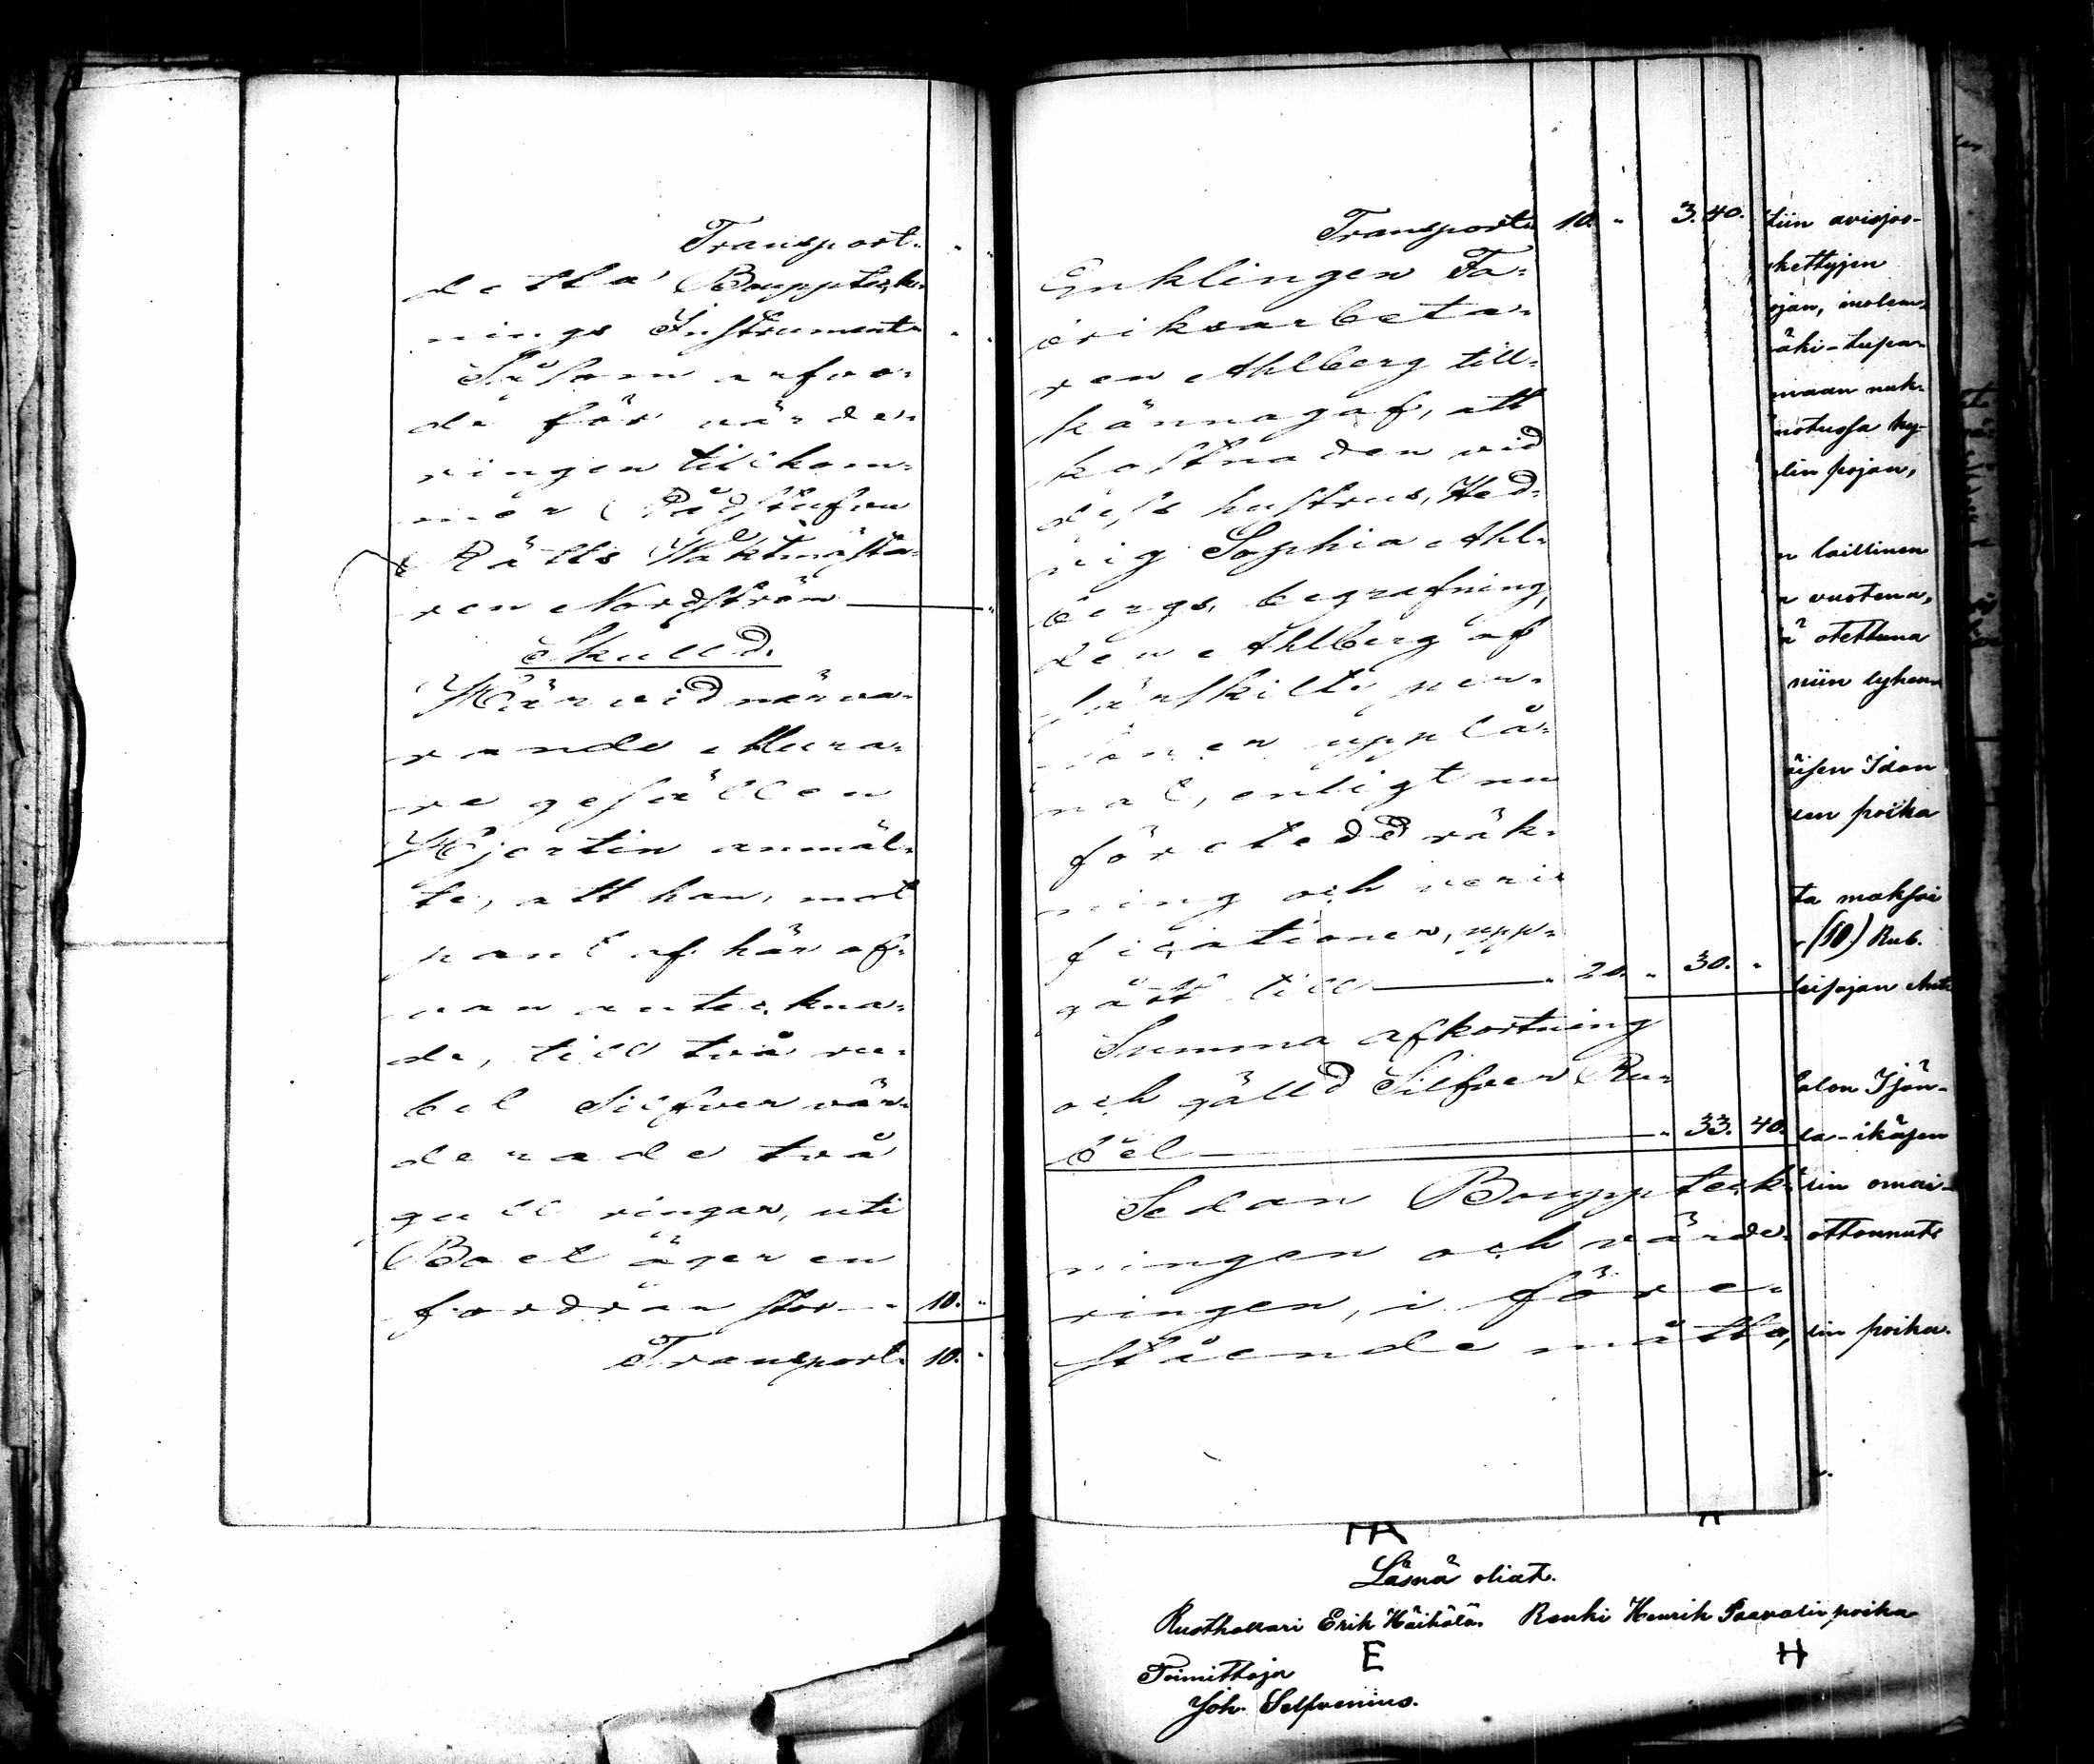 Transport.
detta Bouppteck-
nings Instrument
Såsom arfvo-
de för värde-
ringen tillkom-
mer Rådstufvu
Rätts Waktmästa-
ren Nordström
Skuld.
Här vid närva-
rande Mura-
re gesällen
Hjertin anmäl-
te, att han, mot
pant af här of-
van anteckna-
de, till två ru-
bel Silfver vär-
derade två
gull ringar, uti
Boet äger en
fordran stor 10.
Transport. 10.
Transport 10. 3. 40.
Enklingen Fa-
briksarbeta-
ren Ahlberg till-
kännagaf, att
kostnaden vid
dess hustrus, Hed-
vig Sophia Ahl-
bergs, begrafning,
den Ahlberg af
särskilte per-
soner upplå-
nat, enligt nu
företedd räk-
ning och veri-
ficationer, upp-
gått till 20. 30.
Summa afkortning
och gälld Silfver Ru-
bel 33. 40.
Sedan Bouppteck-
ningen och värde-
ringen, i före-
stående måtto,
tiin
kettyjen
äki-tupa-
maan
lin pojan,
n laillinen
n vuotena,
ä otettuna
niin
Idan
uen poika
ta maksoi
(10) Rub.
la-ikäsen
iin omai-
ottannut
lin poika
Läsnä oliat.
Rusthollari Erik Häihälä. Renki Henrik Paavalin poika
E H
Toimittaja
Joh. Selfvenius.